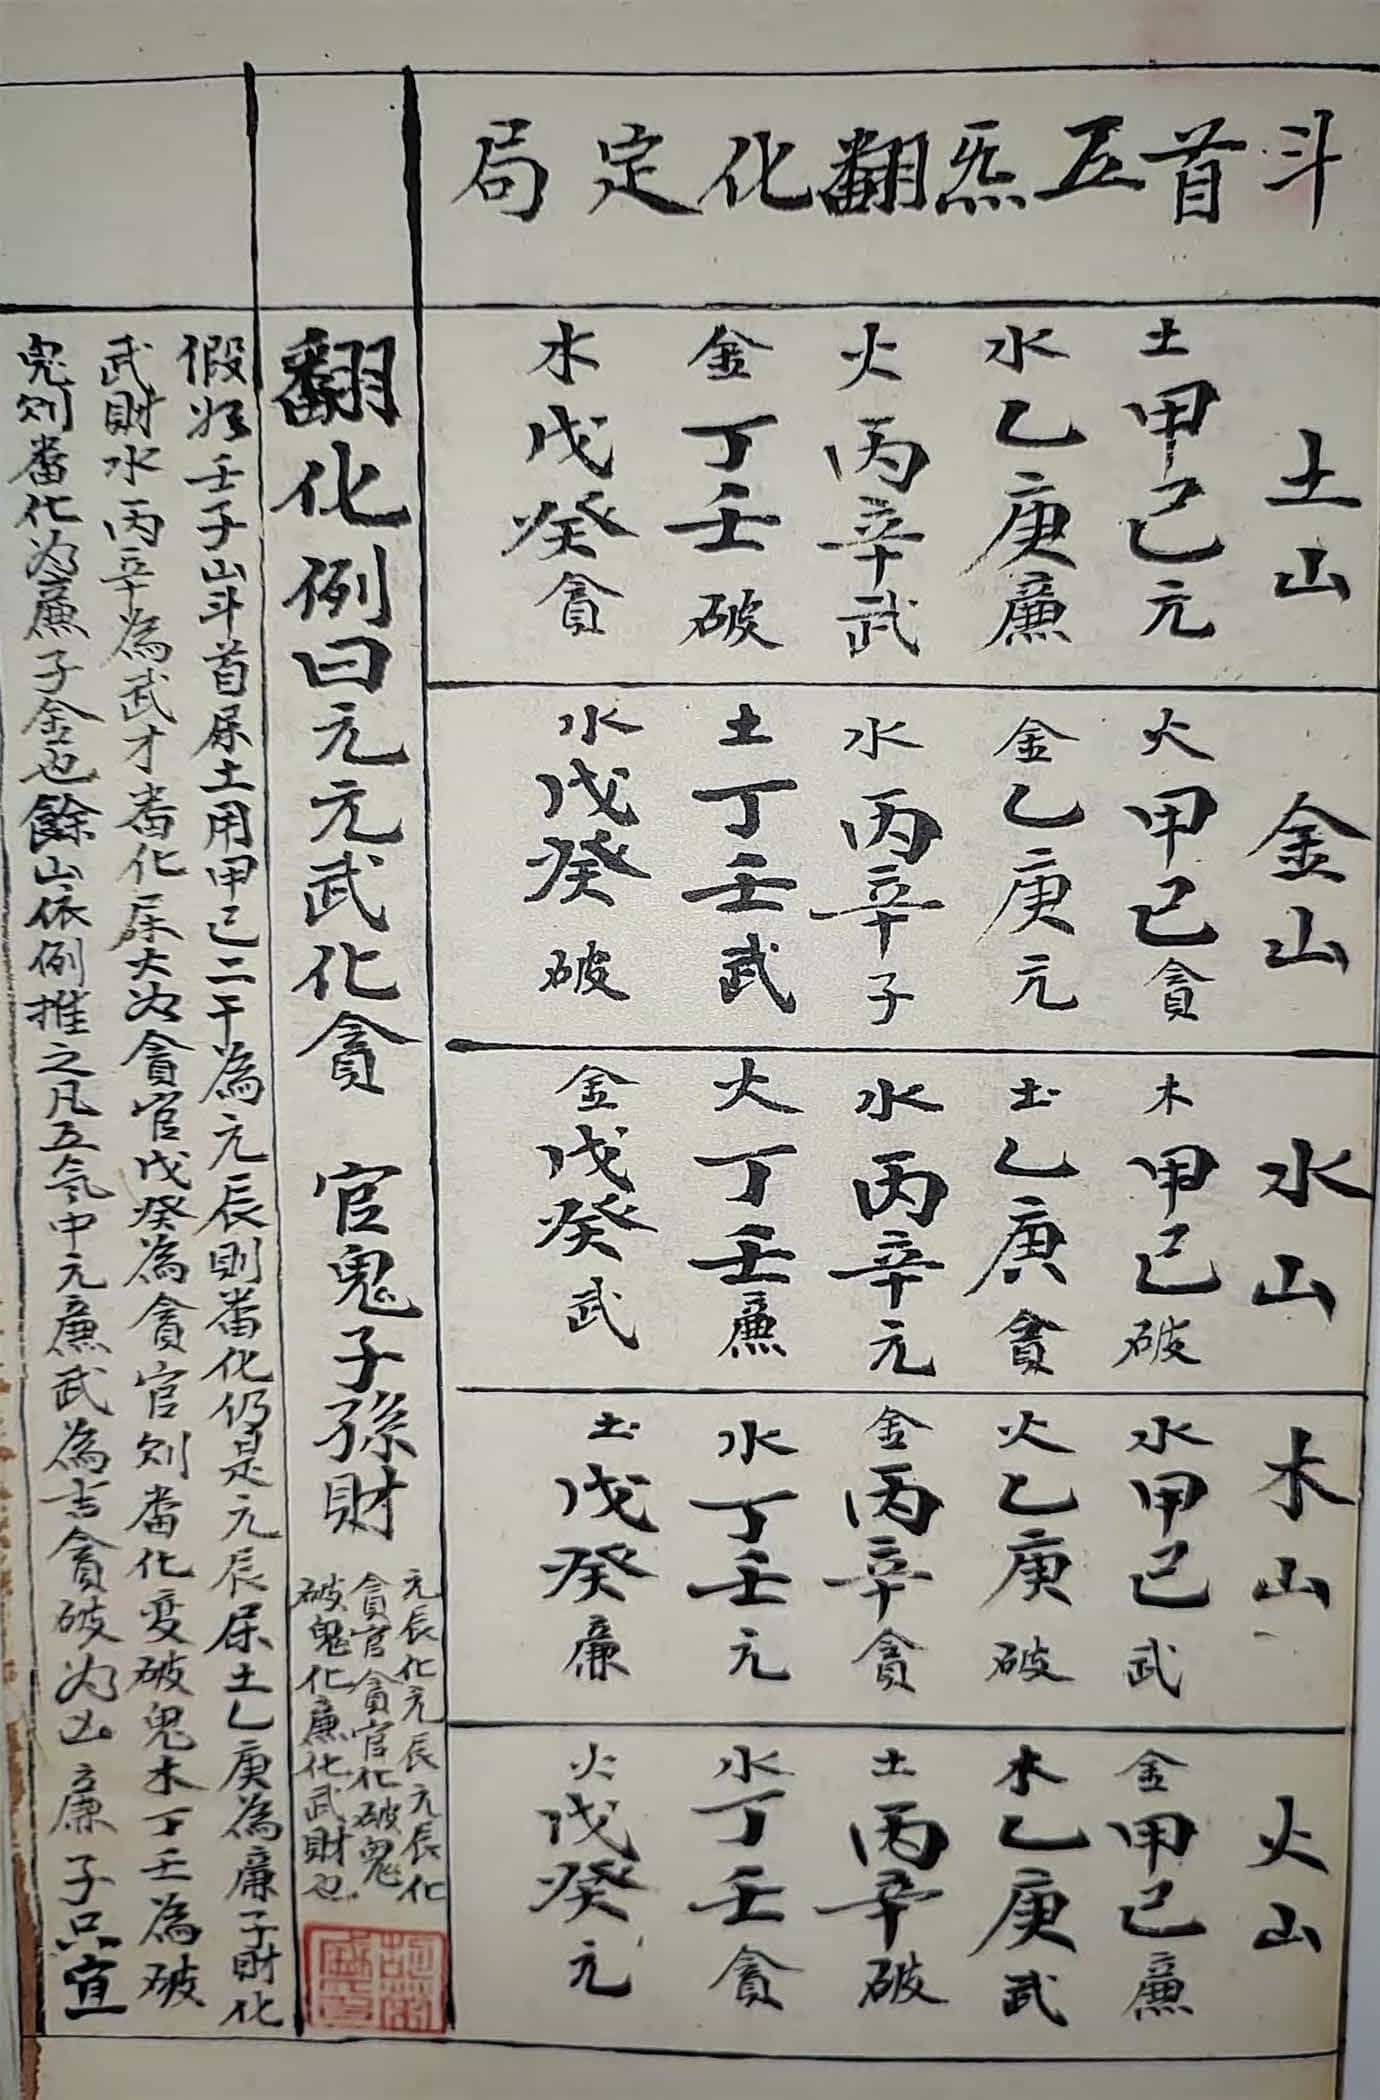 斗首五炁翻化定局
土山
土甲己元
水乙庚廉
火丙辛武
金丁壬破
水戊癸貪
金山
火甲己貪
金乙庚元
水丙辛子
土丁壬武
水戊癸破
水山
木甲己破
土乙庚貪
水丙辛元
火丁壬廉
金戊癸武
木山
水甲己武
火乙庚破
金丙辛貪
水丁壬元
土戊癸廉
火山
金甲己廉
木乙庚武
土丙辛破
水丁壬貪
火戊癸元
翻化例曰元元武化貪 官鬼子孫財
元辰化元辰元辰化
貪官貪官化破鬼
破鬼化廉化武財也
假如壬子山斗首屎土用甲己二干為元辰則畨化仍是元辰屎土乙庚為廉子財化
武財水丙辛為武才畨化屎火为貪官戊癸為貪官则畨化变破鬼木丁壬為破
鬼则畨化为廉子金也餘山依例推之凡五気中元廉武為吉貪破为凶廉子只宜